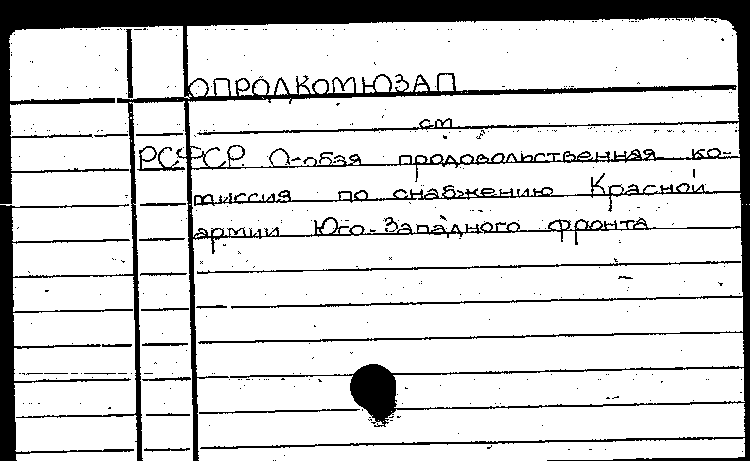 ОПРОДКОМЮЗАП
см
РСФСР. О-обая продовольственная ко-
миссия по снабжению Красной
армии Юго-Западного фронта